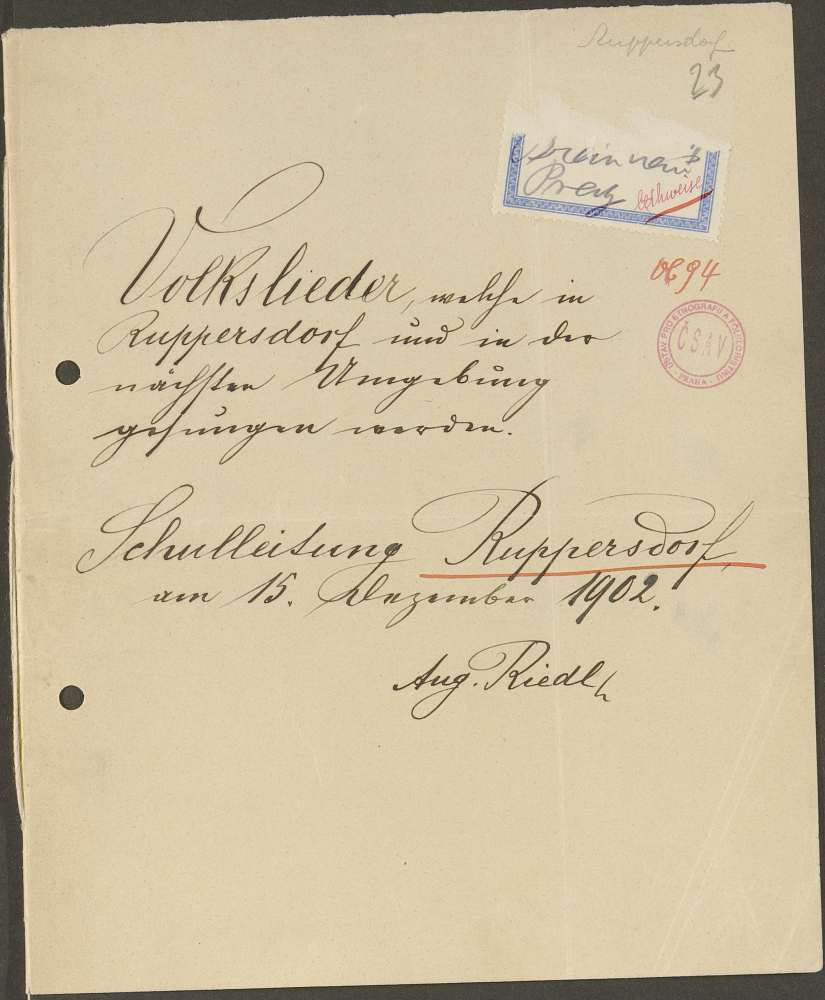 Ruppersdorf
23
Prag leihweise
694
ÚSTAV PRO ETNOGRAFII A FOLKLORISTIKU
ČSAV
PRAHA
Volkslieder, welche in
Ruppersdorf und in der
nächsten Umgebung
gesungen werden.
Schulleitung Ruppersdorf,
am 15. Dezember 1902.
Aug. Riedl